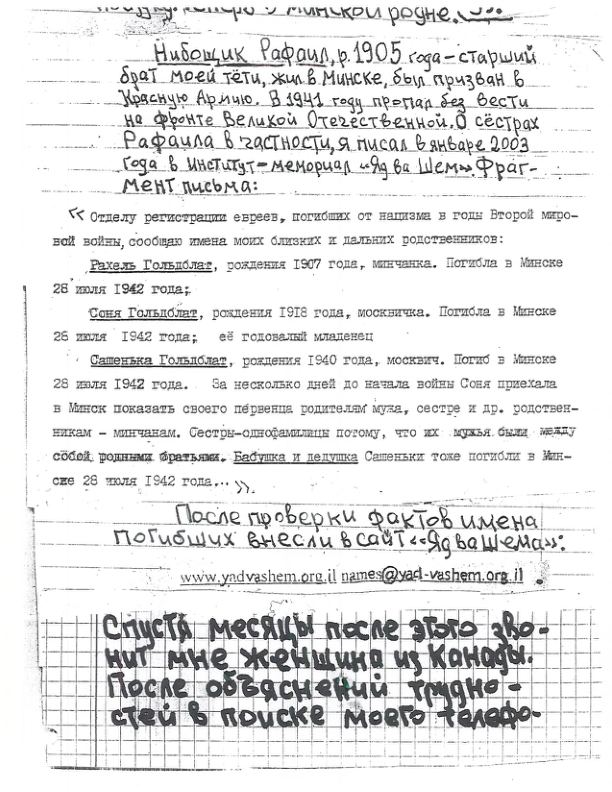 теперь о минской родне.
Нибощик Рафаил, р. 1905 года – старший
брат моей тёти, жил в Минске, был призван в
Красную Армию. В 1941 году пропал без вести
на фронте Великой Отечественной. О сёстрах
Рафаила в частности, я писал в январе 2003
года в Институт-мемориал «Яд ва Шем». Фраг-
мент письма:
« Отделу регистрации евреев, погибших от нацизма в годы Второй миро-
вой войны, сообщаю имена моих близких и дальних родственников:
Рахель Гольдблат, рождения 1907 года, минчанка. Погибла в Минске
28 июля 1942 года;
Соня Гольдблат, рождения 1918 года, москвичка. Погибла в Минске
28 июля 1942 года; её годовалый младенец
Сашенька Гольдблат, рождения 1940 года, москвич. Погиб в Минске
28 июля 1942 года. За несколько дней до начала войны Соня приехала
в Минск показать своего первенца родителям мужа, сестре и др. родствен-
никам – минчанам. Сестры-однофамилицы потому, что их мужья были между
собой родными братьями. Бабушка и дедушка Сашеньки тоже погибли в Мин-
ске 28 июля 1942 года... ».
После проверки фактов имена
погибших внесли в сайт «Яд ва Шема»:
www.yadvashem.org.il names@yad-vashem.org.il .
Спустя месяцы после этого зво-
нит мне женщина из Канады.
После объяснений трудно-
стей в поиске моего телефо-